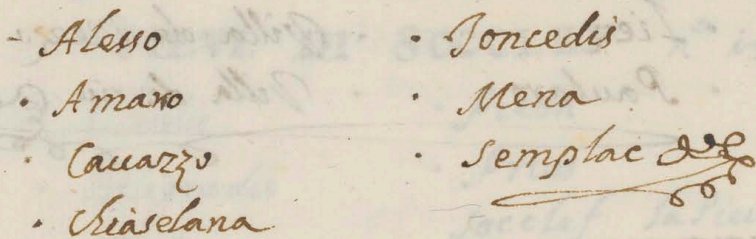 - Alesso
· Amaro
· Cauazzo
· Chiaselana
· Joncedis
· Mena
· Semplac